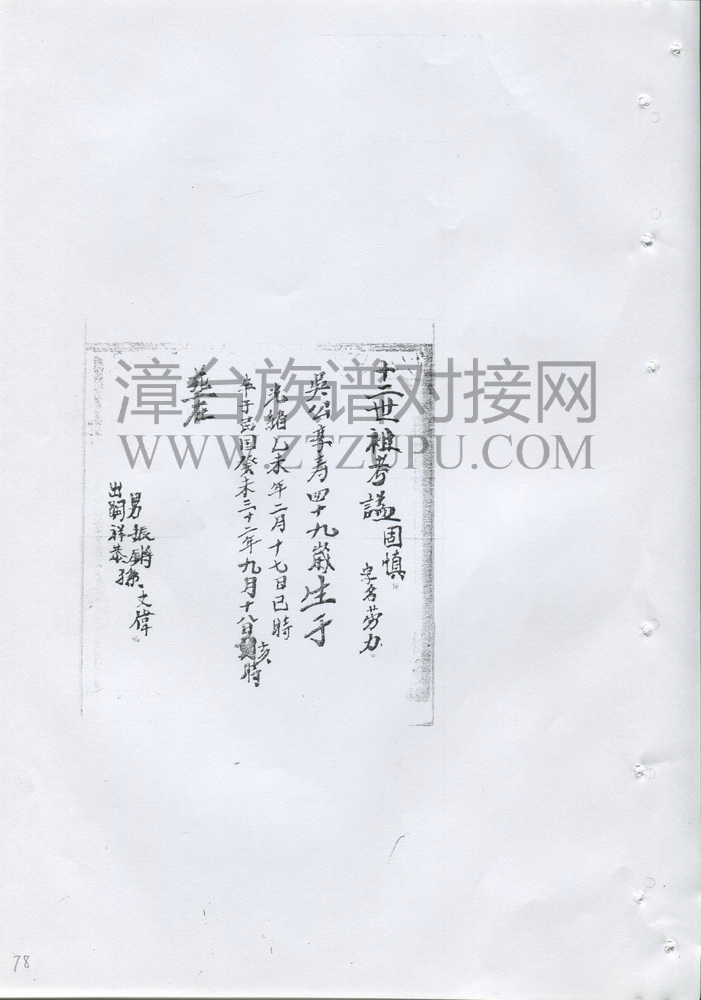 十二世祖考謚固慎
字名劳力
吳公享寿四十九歲生于
光緒乙未年二月十七日巳時
卒于民国癸未三十二年九月十八日亥時
葬在
男振鏘 孫文偉
出嗣祥恭
漳台族谱对接网
WWW.ZTZUPU.COM
78